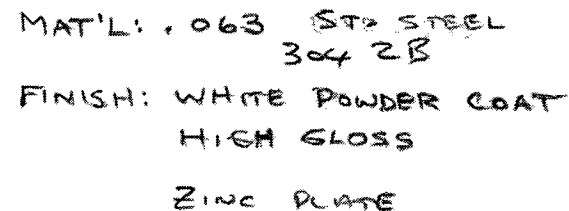 MAT'L: .063 STD STEEL
304 2B
FINISH: WHITE POWDER COAT
HIGH GLOSS
ZINC PLATE